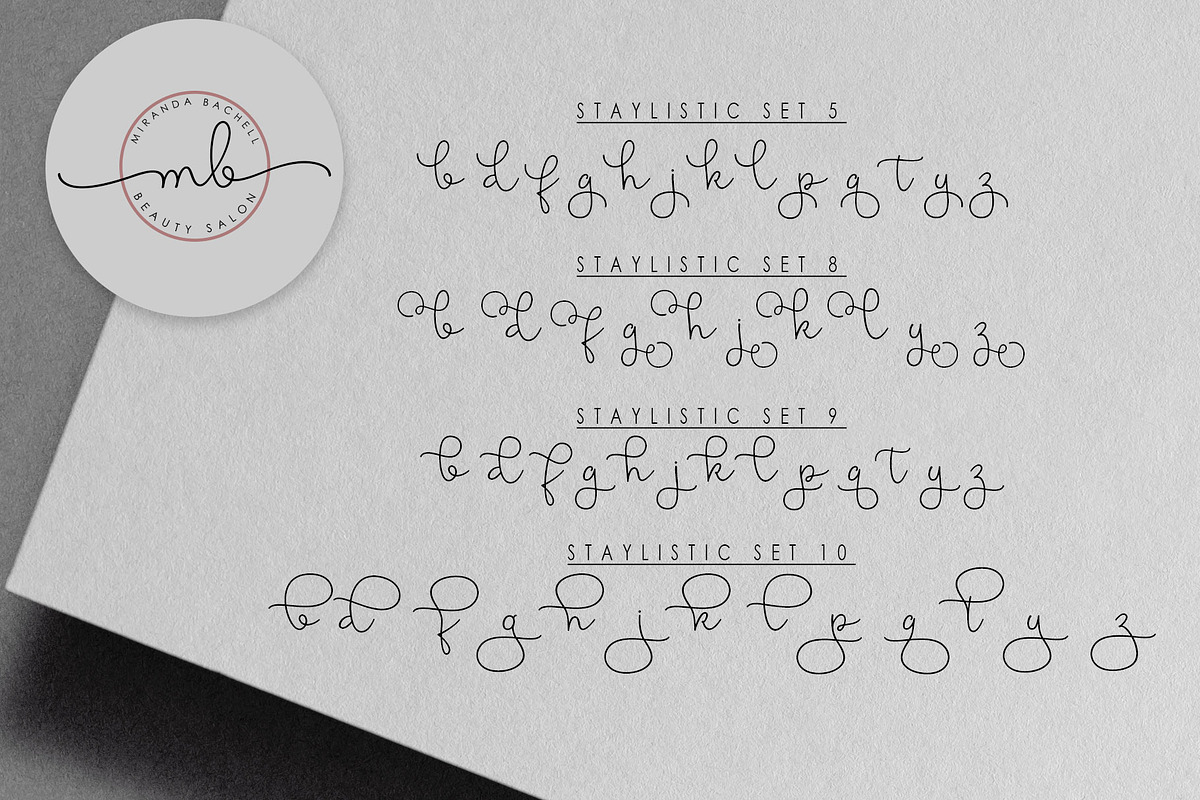 MIRANDA BACHELL
mb
BEAUTY SALON
STAYLISTIC SET 5
b d f g h j k l p q t y z
STAYLISTIC SET 8
b d f g h j k l y z
STAYLISTIC SET 9
b d f g h j k l p q t y z
STAYLISTIC SET 10
b d f g h j k l p q t y z